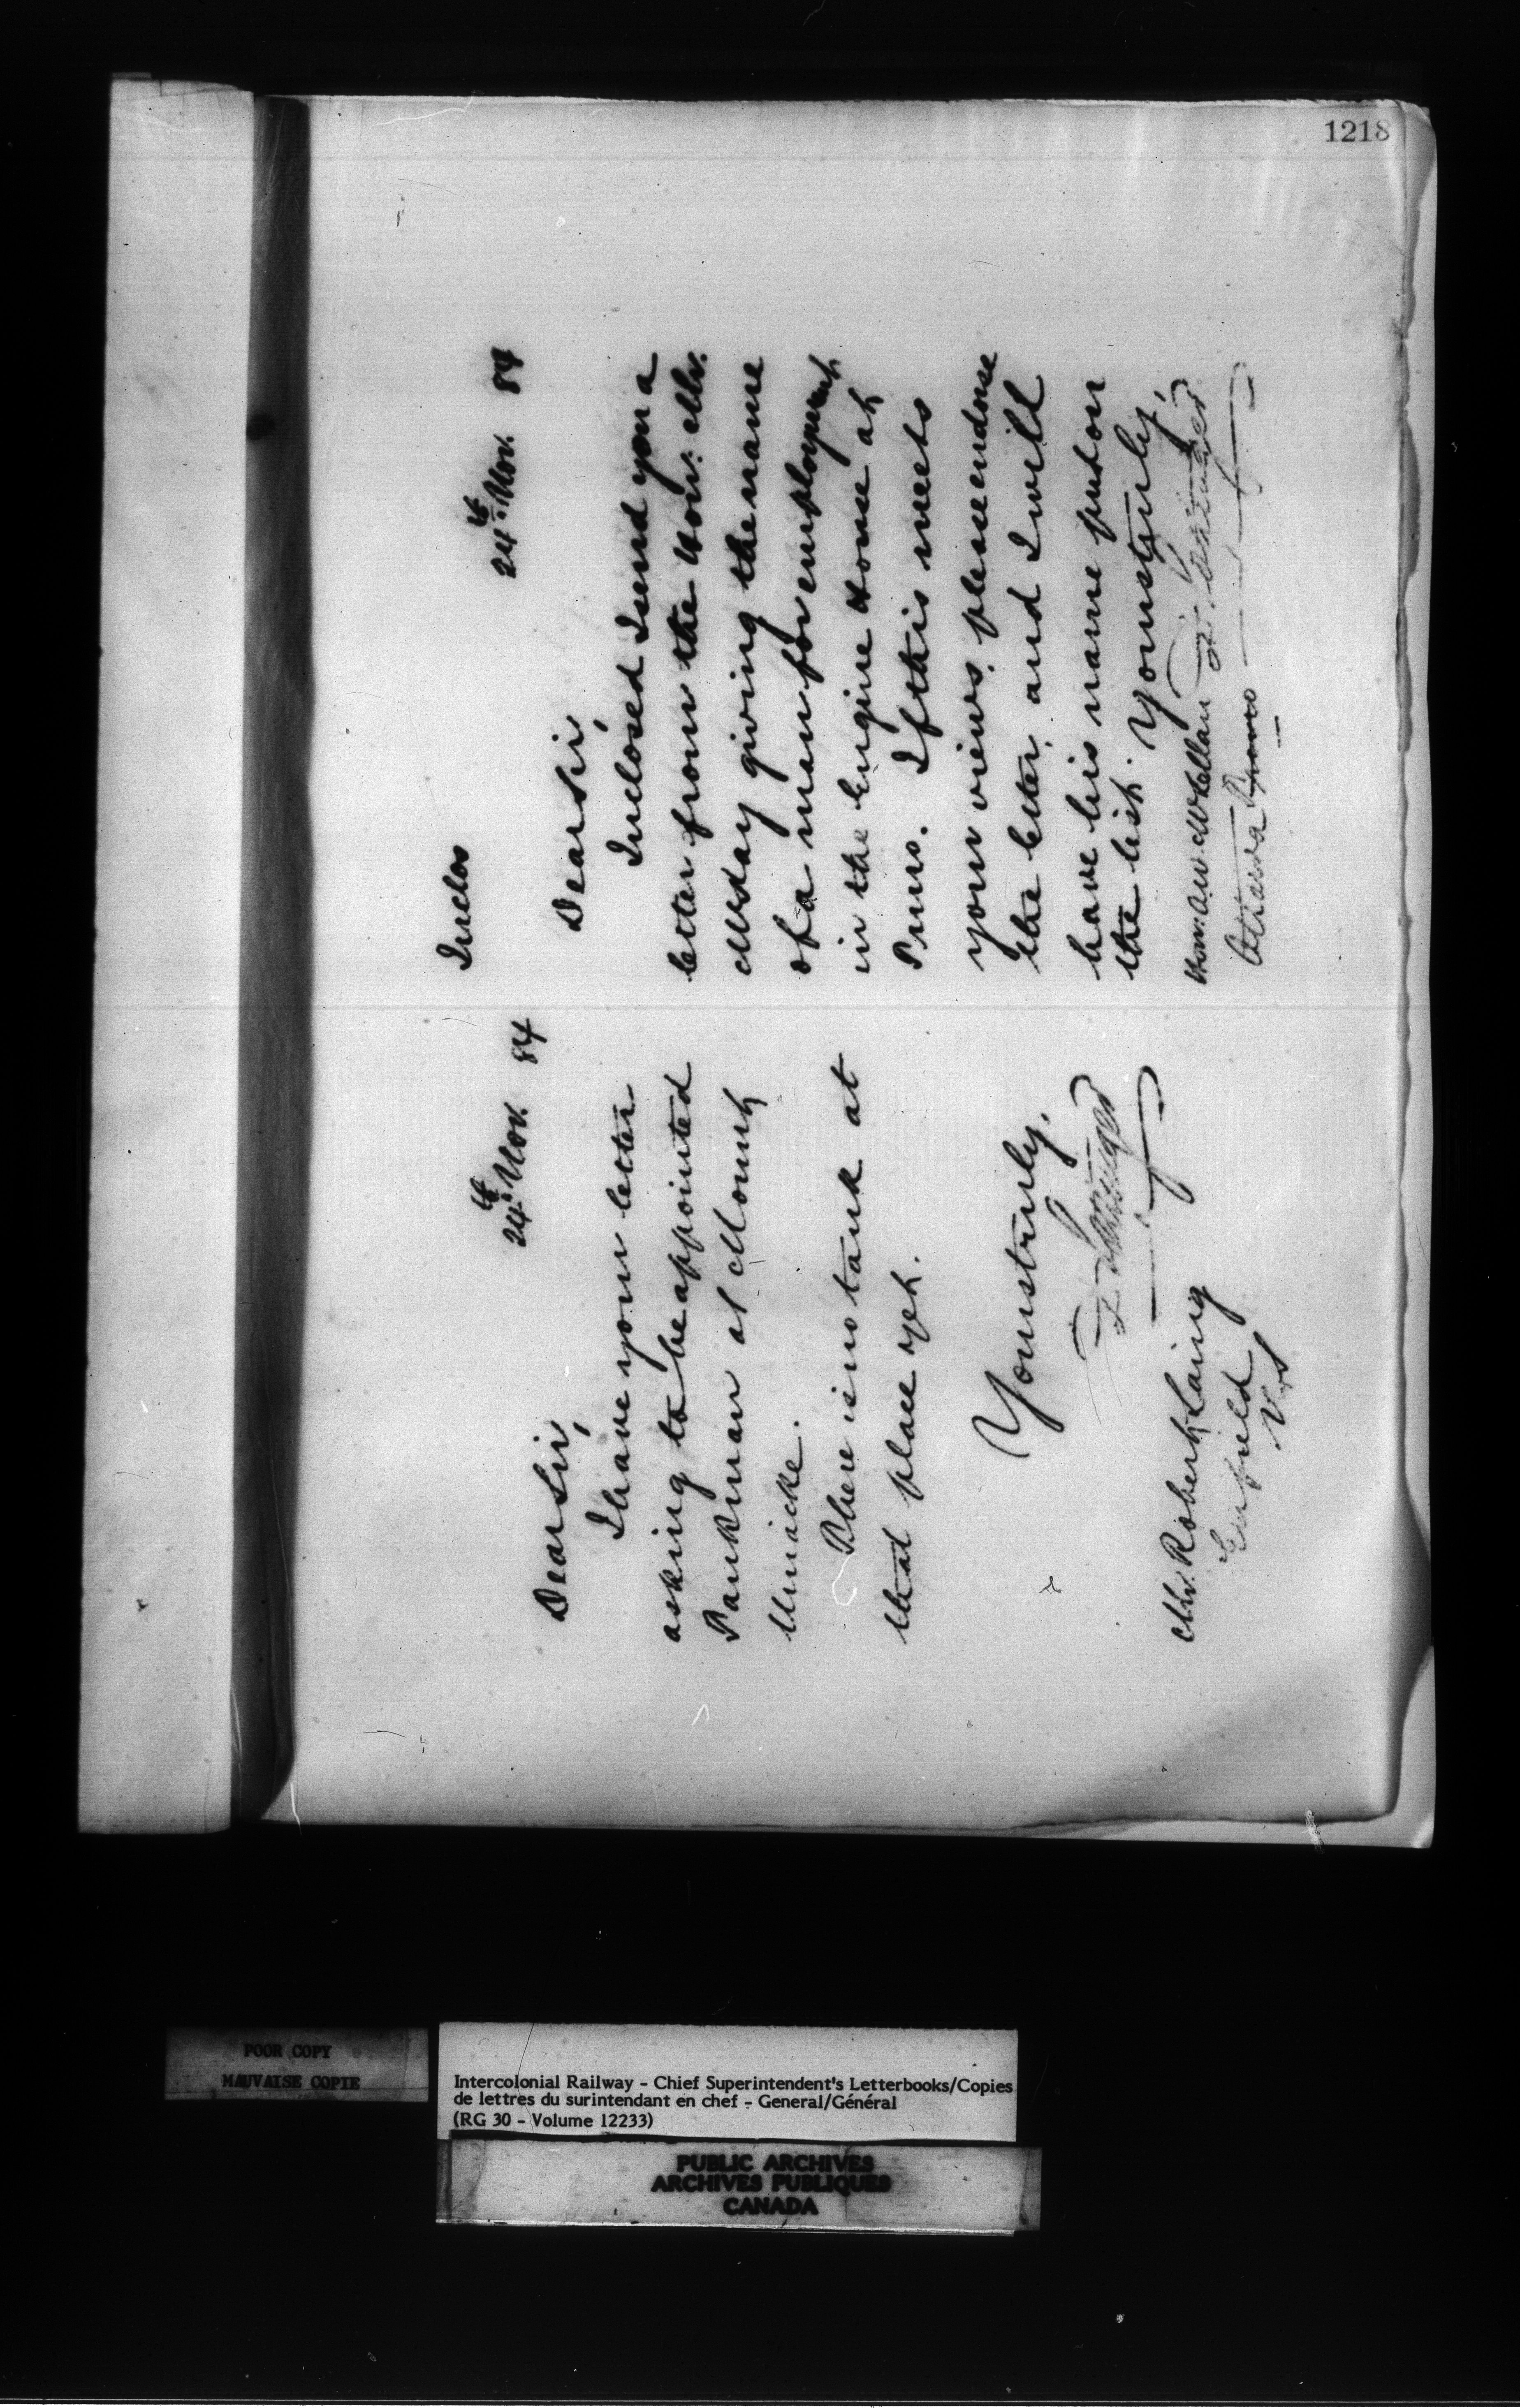 1218
24th Nov. 84
Dear Sir,
I have your letter
asking to be appointed
Tankman at Mount
Uniacke.
There is no tank at
that place yet.
Yours truly,
Mr. Robert Laing
Enfield
N.S
Inclos
24th Nov. 84
Dear Sir,
Inclosed I send you a
letter from the Hon: Mr.
McKay giving the name
of a man for employment
in the Engine House at
Truro. If this meets
your views, please endorse
the letter, and I will
have his name put on
the list. Yours truly,
Hon: A W McLelan
Ottawa
POOR COPY
MAUVAISE COPIE
Intercolonial Railway - Chief Superintendent's Letterbooks/Copies
de lettres du surintendant en chef - General/Général
(RG 30 - Volume 12233)
PUBLIC ARCHIVES
ARCHIVES PUBLIQUES
CANADA